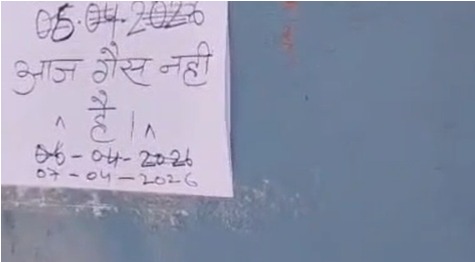 05.04.2026
आज गैस नही
है।
06-04-2026
07-04-2026